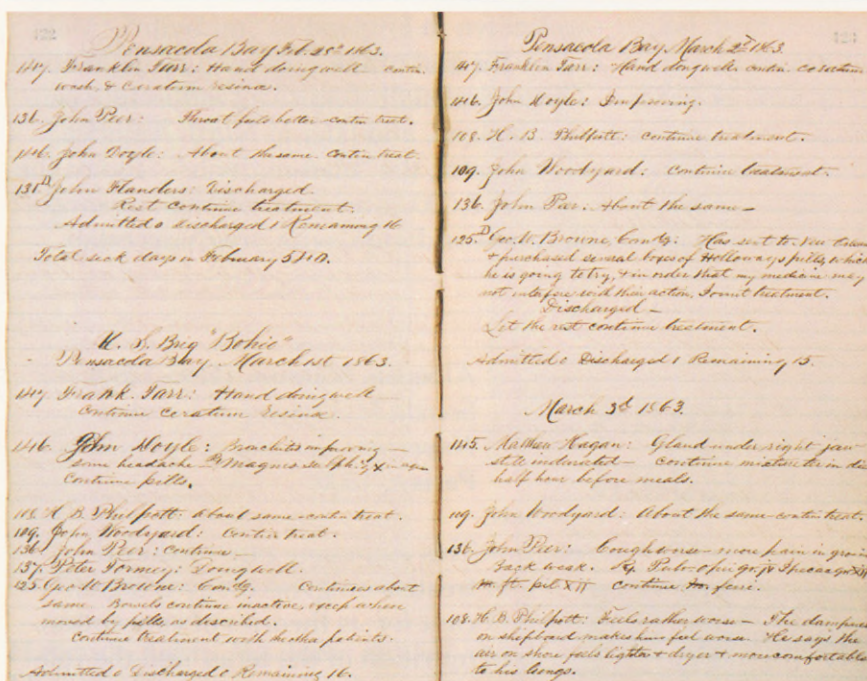 122
Pensacola Bay Feb. 28th 1863.
147. Franklin Tarr: Hand doing well contin.
wash & ceratum resinæ.
136. John Peer: Throat feels better contin treat.
146. John Doyle: About the same. contin treat.
131 D John Flanders: Discharged
Rest continue treatment.
Admitted 0 Discharged 1 Remaining 16
Total sick days in February
U. S. Brig "Bohio"
Pensacola Bay, March 1st 1863.
147 Frank Tarr: Hand doing well
continue ceratum resinæ.
146. John Doyle: Bronchitis improving —
some headache Magnes sulph
continue pills.
108. H. B. Philpott: About same contin treat.
109. John Woodyard: Contin treat.
136. John Peer: Continue —
137. Peter Tormey: Doing well.
125. Geo. W. Browne: Comdg. Continues about
same. Bowels continue inactive, except when
moved by pills, as described.
Continue treatment with the other patients.
Admitted 0 Discharged 0 Remaining 16.
123
Pensacola Bay March 2d 1863.
147. Franklin Tarr: Hand doing well. contin.
146. John Doyle: Improving.
108. H. B. Philpott: continue treatment.
109. John Woodyard: continue treatment.
136. John Peer: About the same —
125. D Geo. W. Browne, Comdg: Has sent to New
& purchased several boxes of Holloway's pills, which
he is going to try, & in order that my medicine may
not interfere with their action, I omit treatment.
Discharged —
Let the rest continue treatment.
Admitted 0 Discharged 1 Remaining 15.
March 3d 1863.
145. Hagan: Gland under right jaw
still indurated — continue mixture ter in die
half hour before meals.
109. John Woodyard: About the same contin treat.
136. John Peer: Cough worse — more pain in groin
Back weak. Pulv. opii gr. Ipecac gr
ft. pil XII continue ferri.
108. H. B. Philpott: Feels rather worse — The dampness
on shipboard makes him feel worse. He says the
air on shore feels lighter & dryer & more comfortable
to his lungs.